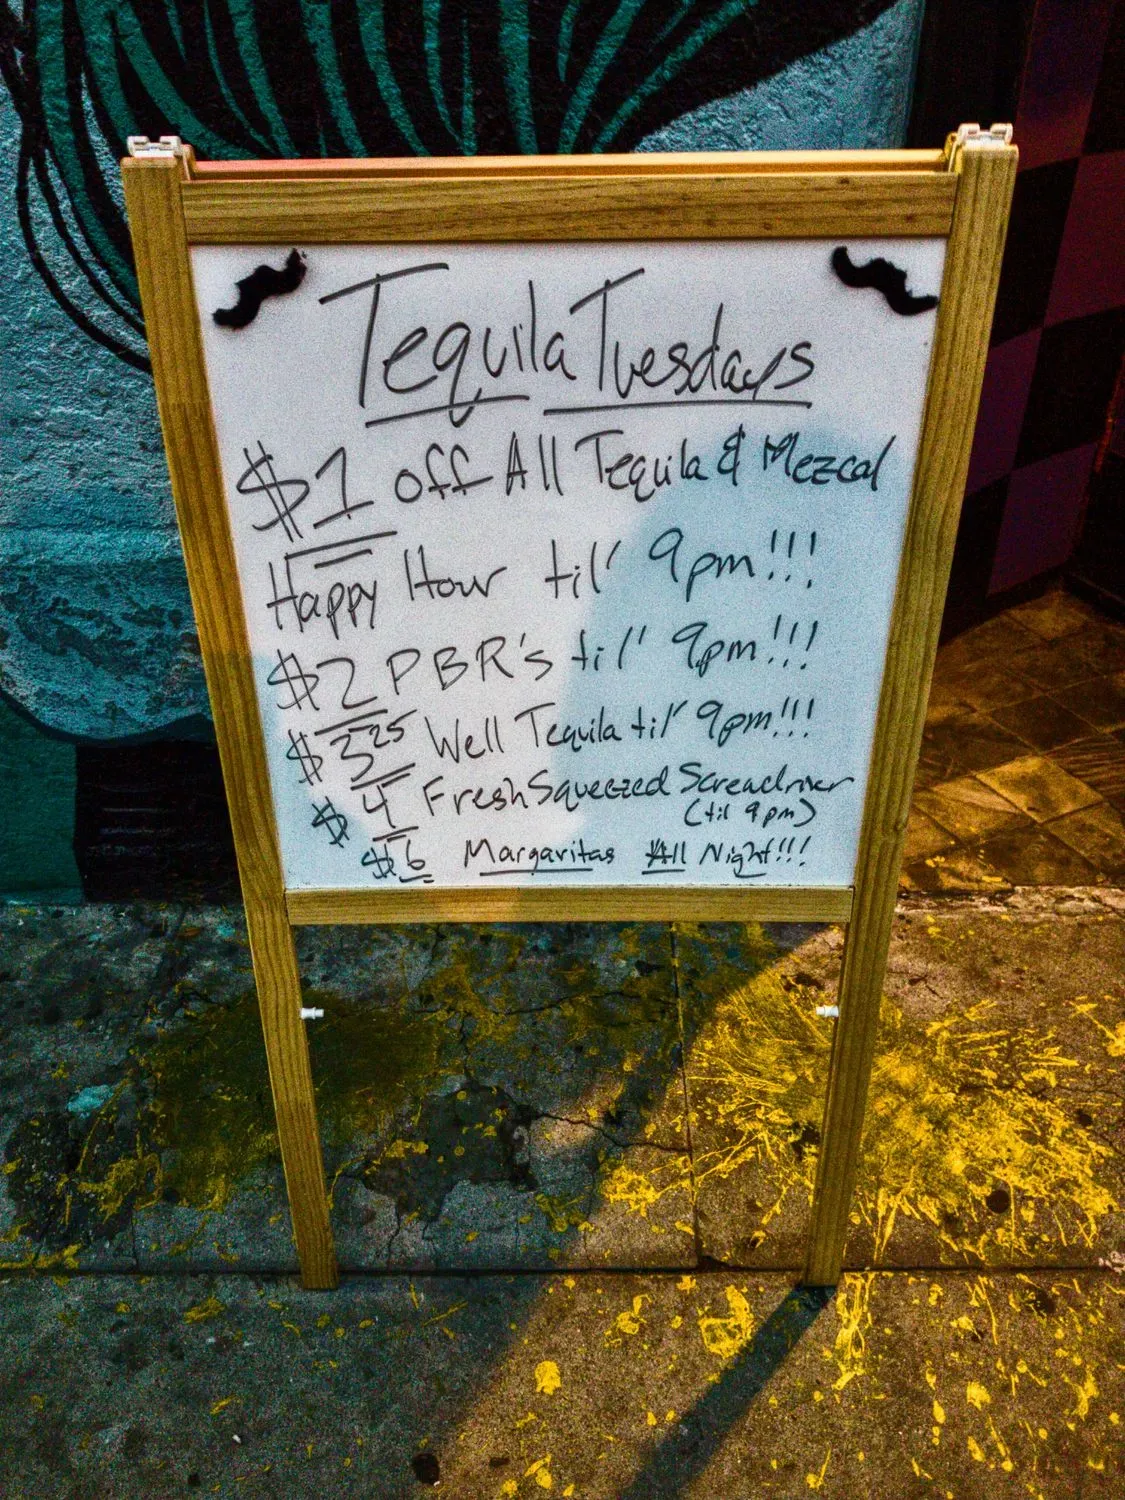 Tequila Tuesdays
$1 off All Tequila & Mezcal
Happy Hour til' 9pm!!!
$2 PBR's til' 9pm!!!
$3.25 Well Tequila til' 9pm!!!
$4 Fresh Squeezed Screwdriver
(til 9pm)
$6 Margaritas All Night!!!